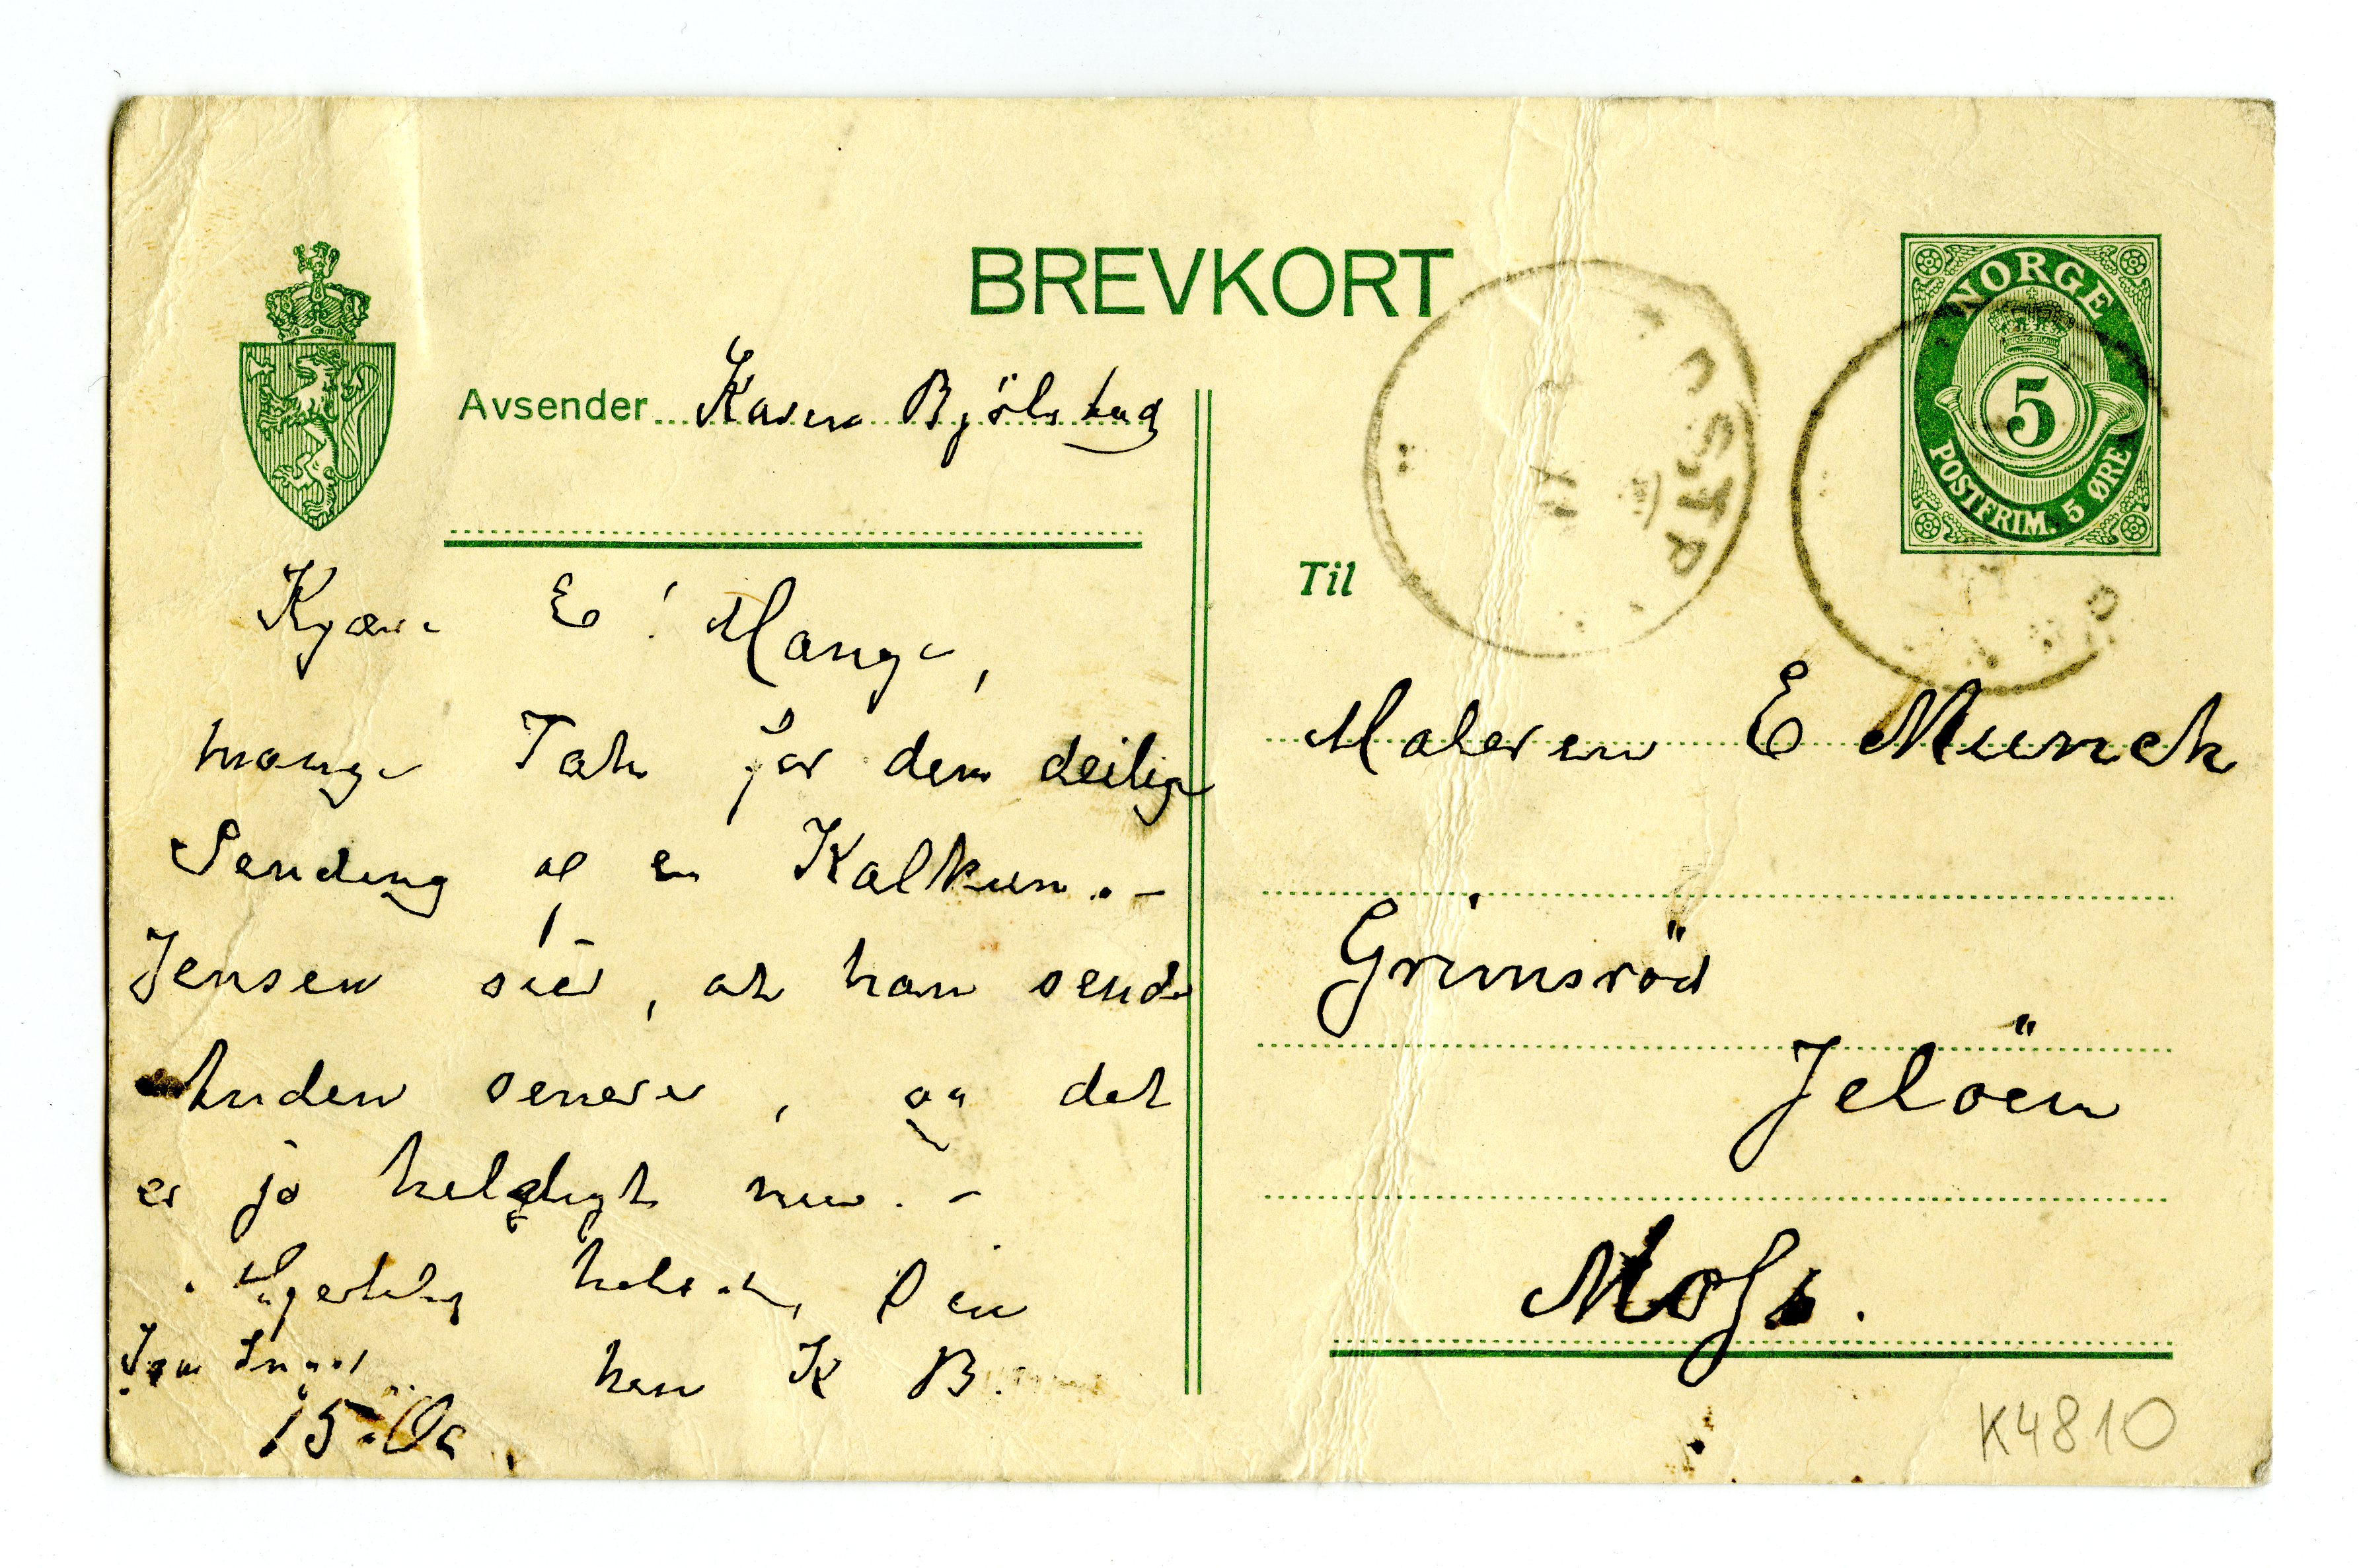 BREVKORT
NORGE
5
POSTFRIM. 5 ØRE
Avsender Karen Bjölstad
Kjære E! Mange,
mange Tak for den deilige
Sending af en Kalkun. –
Jensen sier, at han sende
anden senere, og det
er jo heldigt nu. –
Hjertelig hilsen, Din
hen K B.
15
Til
Maleren E Munch
Grimsröd
Jelöen
Moss.
K4810